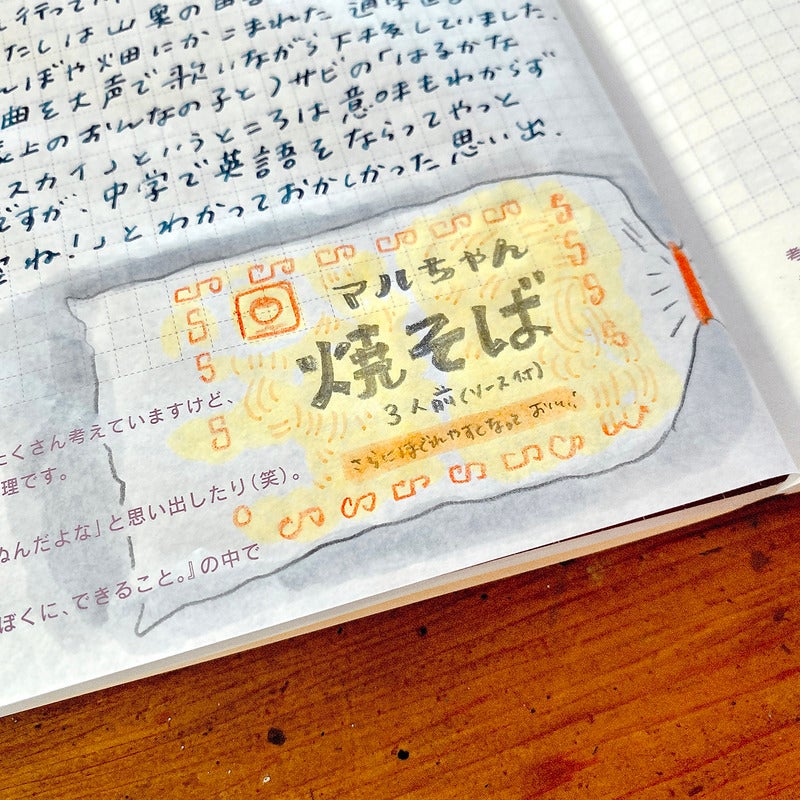 行って
たしは山奥の田
んぼや畑にかこまれた通学
曲を大声で歌いながら下校していました.
上のおんなの子と)サビの「はるかな
スカイ」というところは意味もわからず
ですが、中学で英語をならってやっと
ね!」とわかっておかしかった思い出.
マルちゃん
焼そば
3人前(ソース付)
さらにほぐれやすくなって おいしい!
たくさん考えていますけど、
理です。
ぬんだよな」と思い出したり(笑)。
ぼくに、できること。』の中で
考